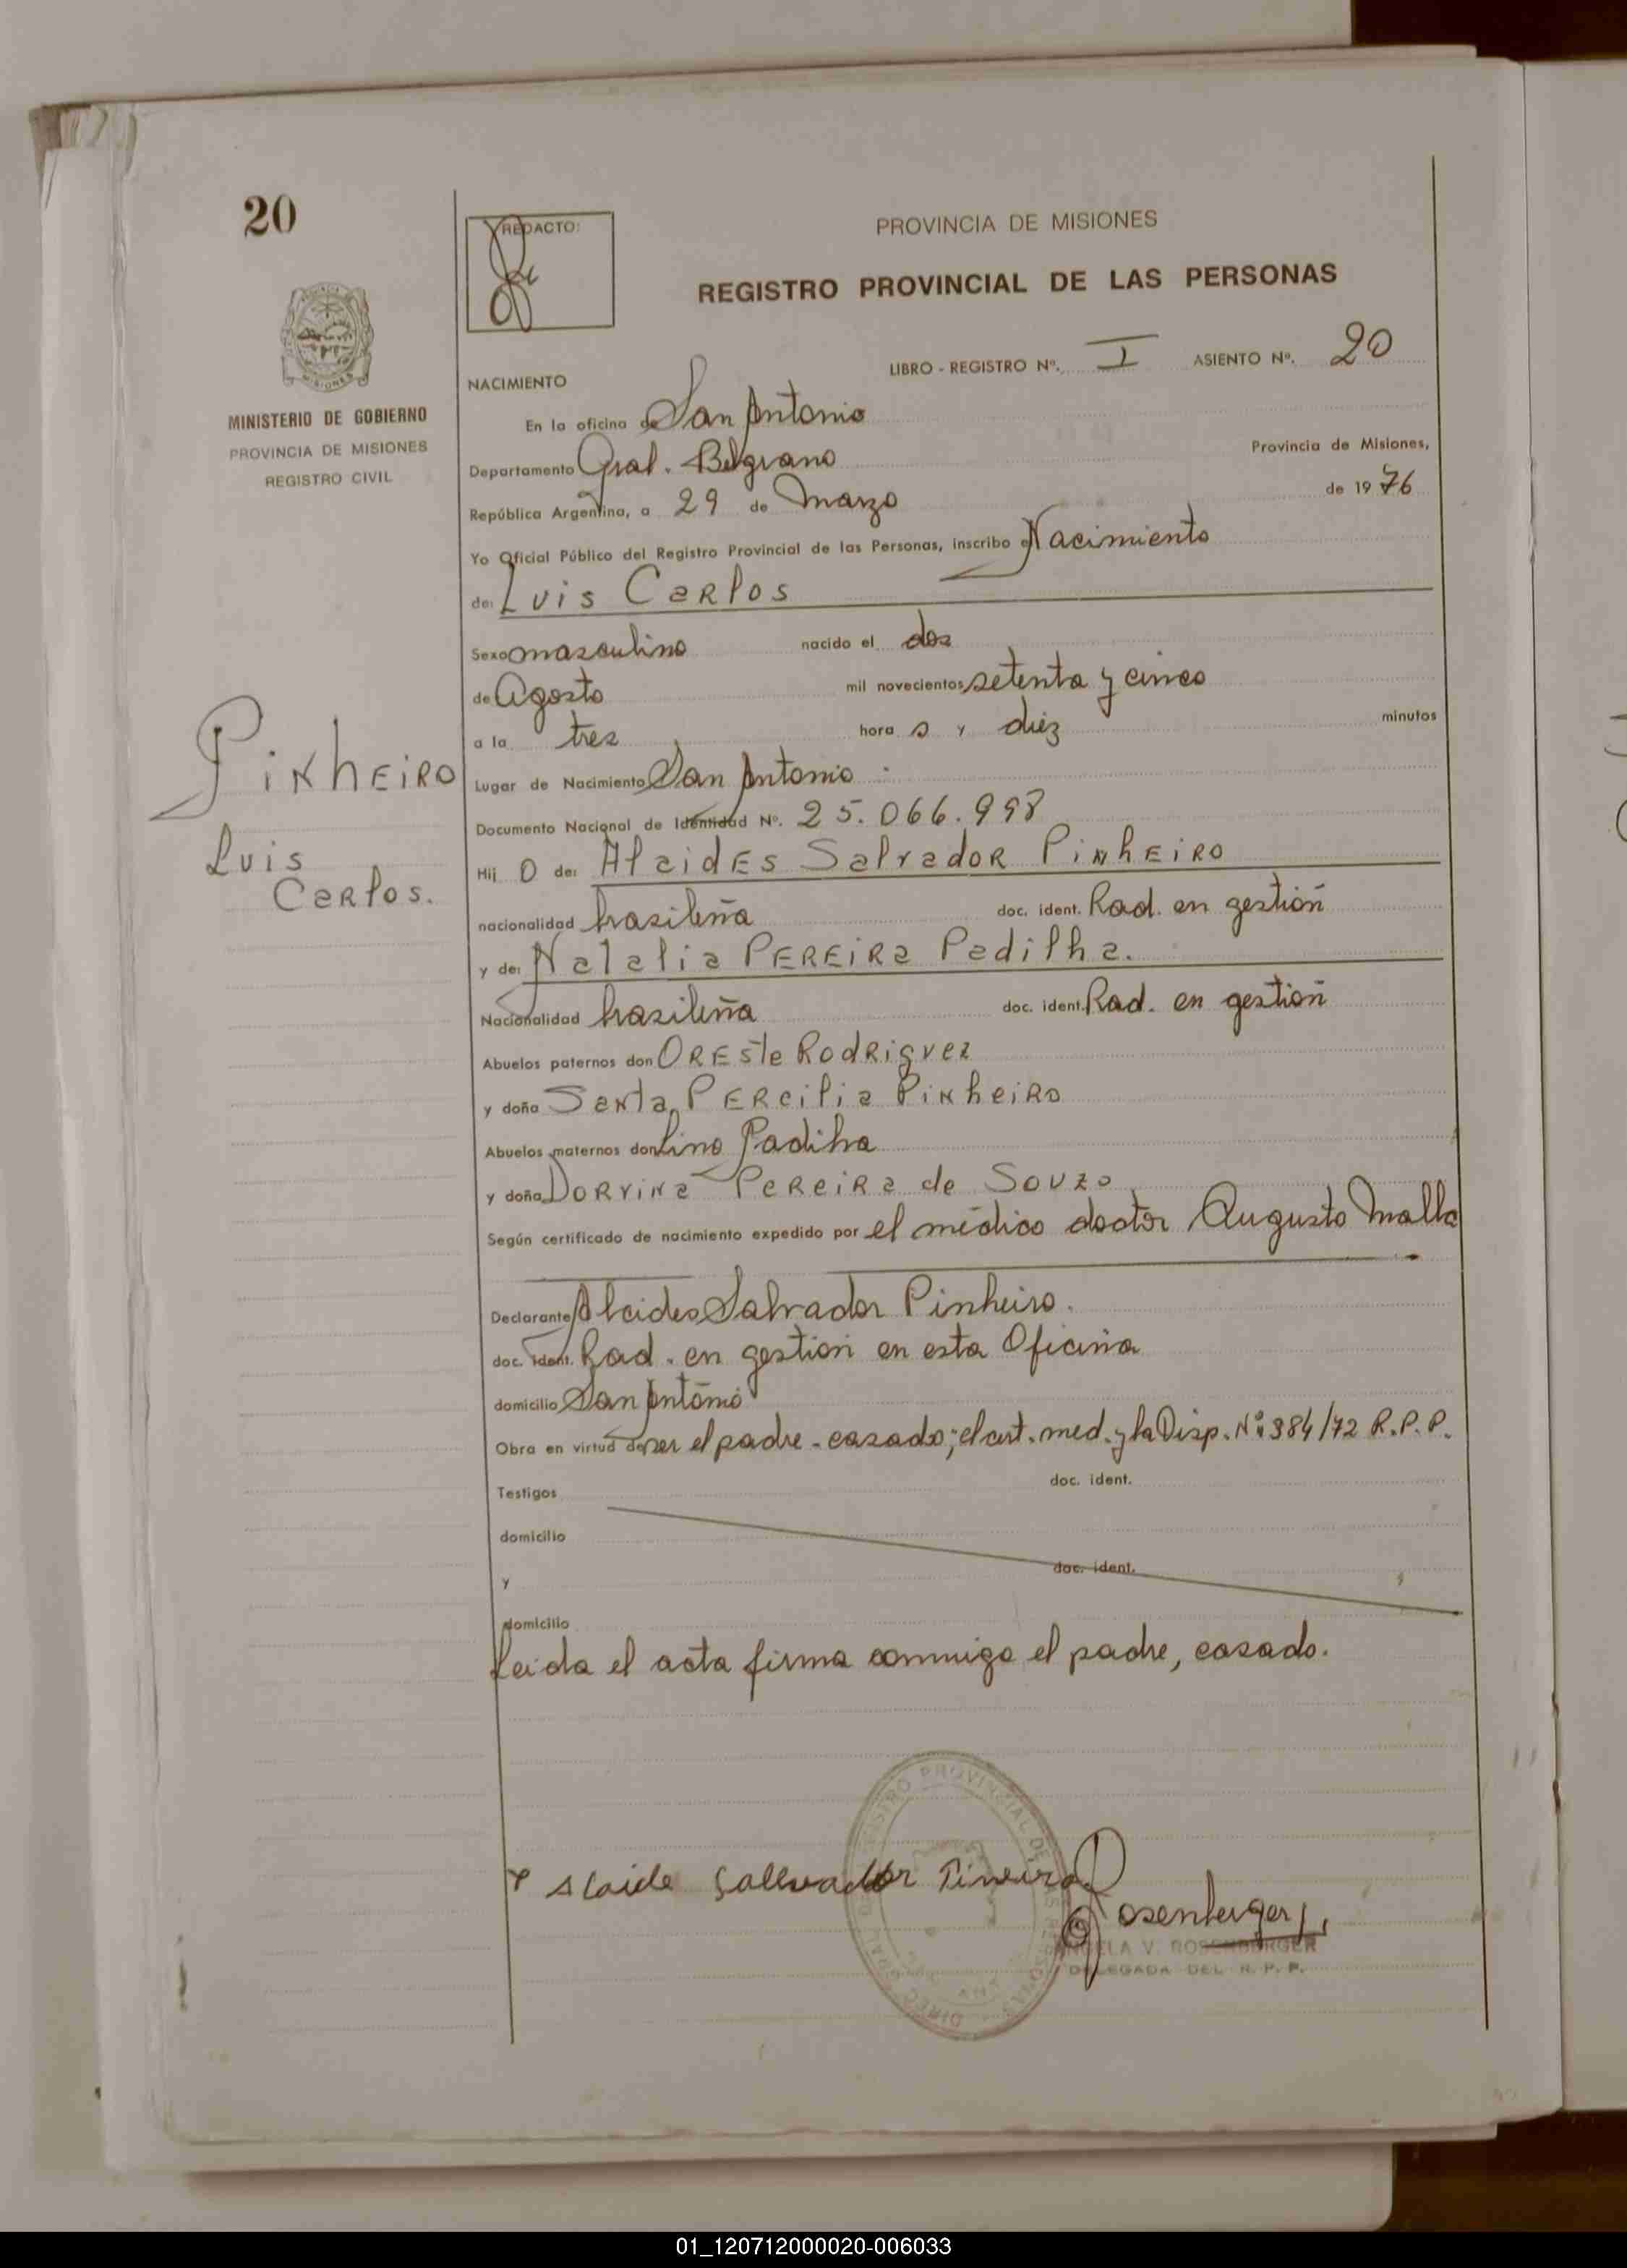 20
REDACTO:
PROVINCIA DE MISIONES
REGISTRO PROVINCIAL DE LAS PERSONAS
LIBRO - REGISTRO Nº. I ASIENTO Nº. 20
MISIONES
MINISTERIO DE GOBIERNO
PROVINCIA DE MISIONES
REGISTRO CIVIL
NACIMIENTO
En la oficina de San Antonio
Departamento Gral. Belgrano Provincia de Misiones,
República Argentina, a 29 de Marzo de 1976
Yo Oficial Público del Registro Provincial de las Personas, inscribo el Nacimiento
de: Luis Carlos
Sexo masculino nacido el dos
de Agosto mil novecientos setenta y cinco
a la tres hora s y diez minutos
Pinheiro
Luis
Carlos.
Lugar de Nacimiento San Antonio
Documento Nacional de Identidad Nº. 25.066.998
Hij o de: Alcides Salvador Pinheiro
nacionalidad brasileña doc. ident. Rad. en gestión
y de: Natalia PEREIRA Padilha.
Nacionalidad brasileña doc. ident. Rad. en gestión
Abuelos paternos don Oreste Rodriguez
y doña Santa Percilia Pinheiro
Abuelos maternos don Lino Padilha
y doña Dorvina Pereira de Souza
Según certificado de nacimiento expedido por el médico doctor Augusto Malla
Declarante Alcides Salvador Pinheiro.
doc. ident. Rad. en gestión en esta Oficina
domicilio San Antonio
Obra en virtud de ser el padre - casado; el cert. med. y la Disp. Nº 384/72 R.P.P.
Testigos doc. ident.
domicilio
y doc. ident.
domicilio
Leida el acta firma conmigo el padre, casado.
Alcide Sallvador Pineiro
Rosenberger
ANGELA V. ROSENBERGER
DELEGADA DEL R. P. P.
01_120712000020-006033